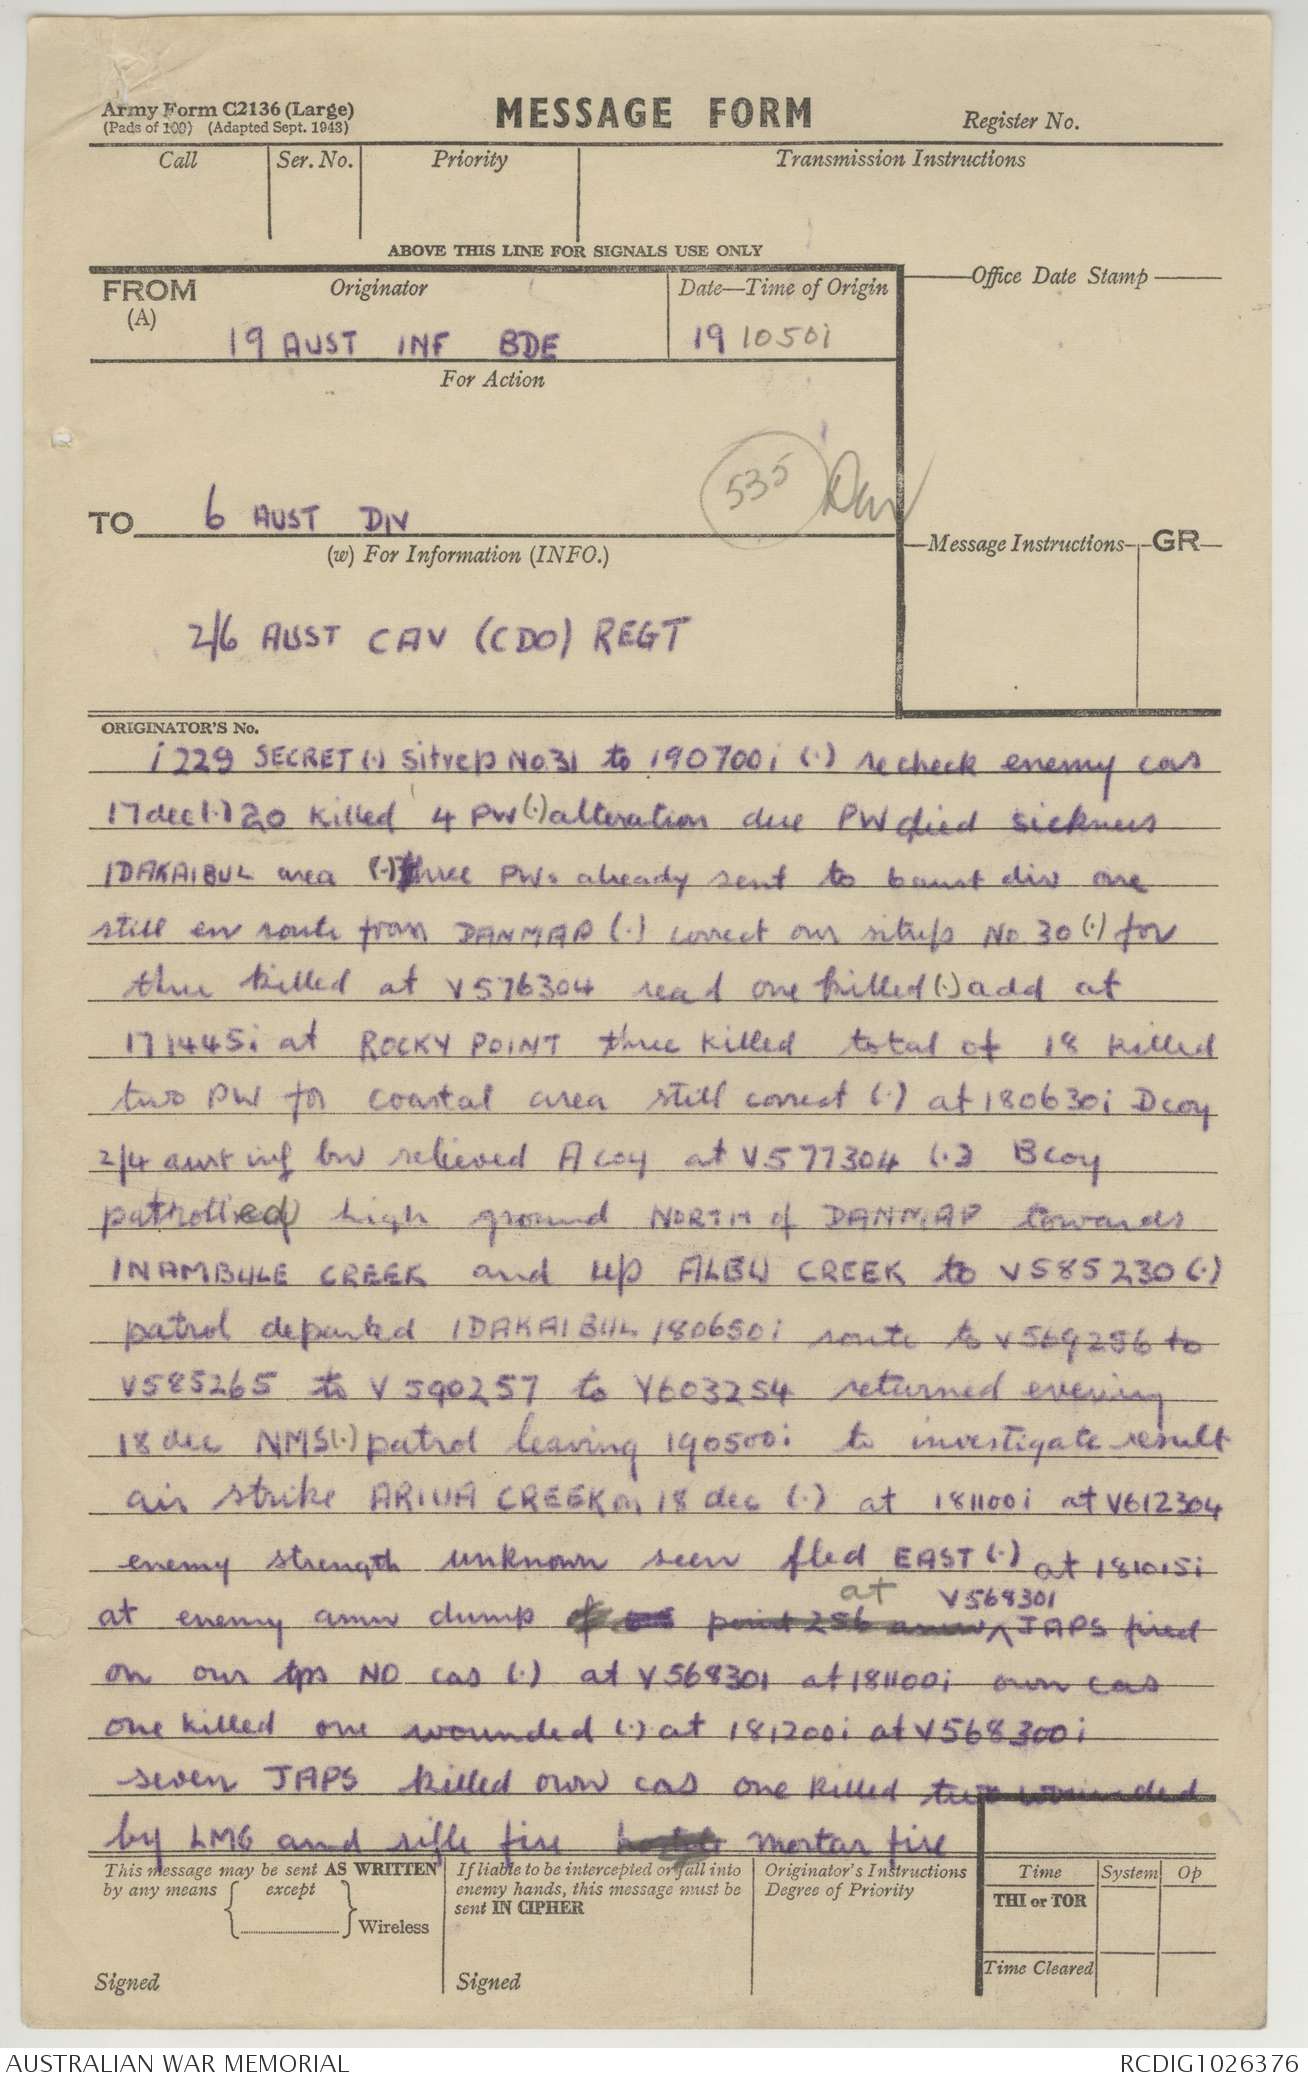 Army Form C2136 (Large)
(Pads of 100) (Adapted Sept. 1943)
MESSAGE FORM
Register No.
Call
Ser. No.
Priority
Transmission Instructions
ABOVE THIS LINE FOR SIGNALS USE ONLY
FROM
(A)
Originator
Date—Time of Origin
Office Date Stamp
19 AUST INF BDE
19 1050i
For Action
535
TO 6 AUST DIV
(w) For Information (INFO.)
Message Instructions
GR
2/6 AUST CAV (CDO) REGT
ORIGINATOR'S No.
i229 SECRET (.) Sitrep No.31 to 190700i (.) recheck enemy cas
17 dec (.) 20 killed 4 PW (.) alteration due PW died sickness
IDAKAIBUL area (.) three PWs already sent to 6 aust div one
still en route from DANMAP (.) correct our sitrep No 30 (.) for
three killed at V576304 read one killed (.) add at
171445i at ROCKY POINT three killed total of 18 killed
two PW for coastal area still correct (.) at 180630i D coy
2/4 aust inf bn relieved A coy at V577304 (.) B coy
patrolled high ground NORTH of DANMAP towards
INAMBULE CREEK and up ALBU CREEK to V585230 (.)
patrol departed IDAKAIBUL 180650i route to V569256 to
V585265 to V590257 to V603254 returned evening
18 dec NMS (.) patrol leaving 190500i to investigate result
air strike ARIUA CREEK on 18 dec (.) at 181100i at V612304
enemy strength unknown seen fled EAST (.) at 181015i
at V568301
at enemy amn dump point 256 JAPS fired
on our tps NO cas (.) at V568301 at 181100i own cas
one killed one wounded (.) at 181200i at V568300i
seven JAPS killed own cas one killed two wounded
by LMG and rifle fire mortar fire
This message may be sent AS WRITTEN
by any means
except
Wireless
Signed
If liable to be intercepted or fall into
enemy hands, this message must be
sent IN CIPHER
Signed
Originator's Instructions
Degree of Priority
Time
System
Op
THI or TOR
Time Cleared
AUSTRALIAN WAR MEMORIAL
RCDIG1026376